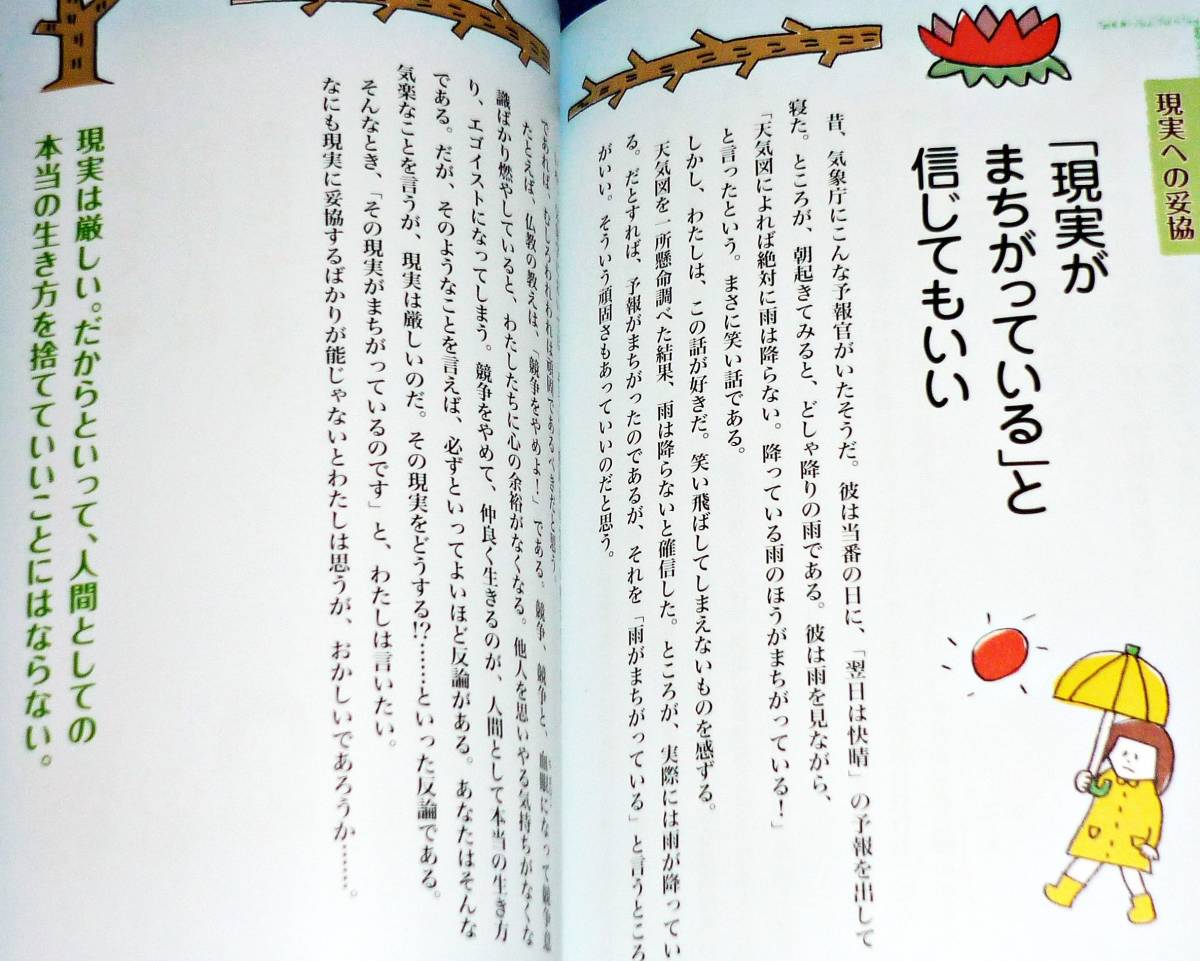 現実への妥協
「現実が
まちがっている」と
信じてもいい
昔、気象庁にこんな予報官がいたそうだ。彼は当番の日に、「翌日は快晴」の予報を出して
寝た。ところが、朝起きてみると、どしゃ降りの雨である。彼は雨を見ながら、
「天気図によれば絶対に雨は降らない。降っている雨のほうがまちがっている！」
と言ったという。まさに笑い話である。
しかし、わたしは、この話が好きだ。笑い飛ばしてしまえないものを感ずる。
天気図を一所懸命調べた結果、雨は降らないと確信した。ところが、実際には雨が降ってい
る。だとすれば、予報がまちがったのであるが、それを「雨がまちがっている」と言うところ
がいい。そういう頑固さもあっていいのだと思う。
であれば、むしろわれわれは頑固であるべきだと思う。
たとえば、仏教の教えは、「競争をやめよ！」である。競争、競争と、血眼になって競争意
識ばかり燃やしていると、わたしたちに心の余裕がなくなる。他人を思いやる気持ちがなくな
り、エゴイストになってしまう。競争をやめて、仲良く生きるのが、人間として本当の生き方
である。だが、そのようなことを言えば、必ずといってよいほど反論がある。あなたはそんな
気楽なことを言うが、現実は厳しいのだ。その現実をどうする!?……といった反論である。
そんなとき、「その現実がまちがっているのです」と、わたしは言いたい。
なにも現実に妥協するばかりが能じゃないとわたしは思うが、おかしいであろうか……。
現実は厳しい。だからといって、人間としての
本当の生き方を捨てていいことにはならない。